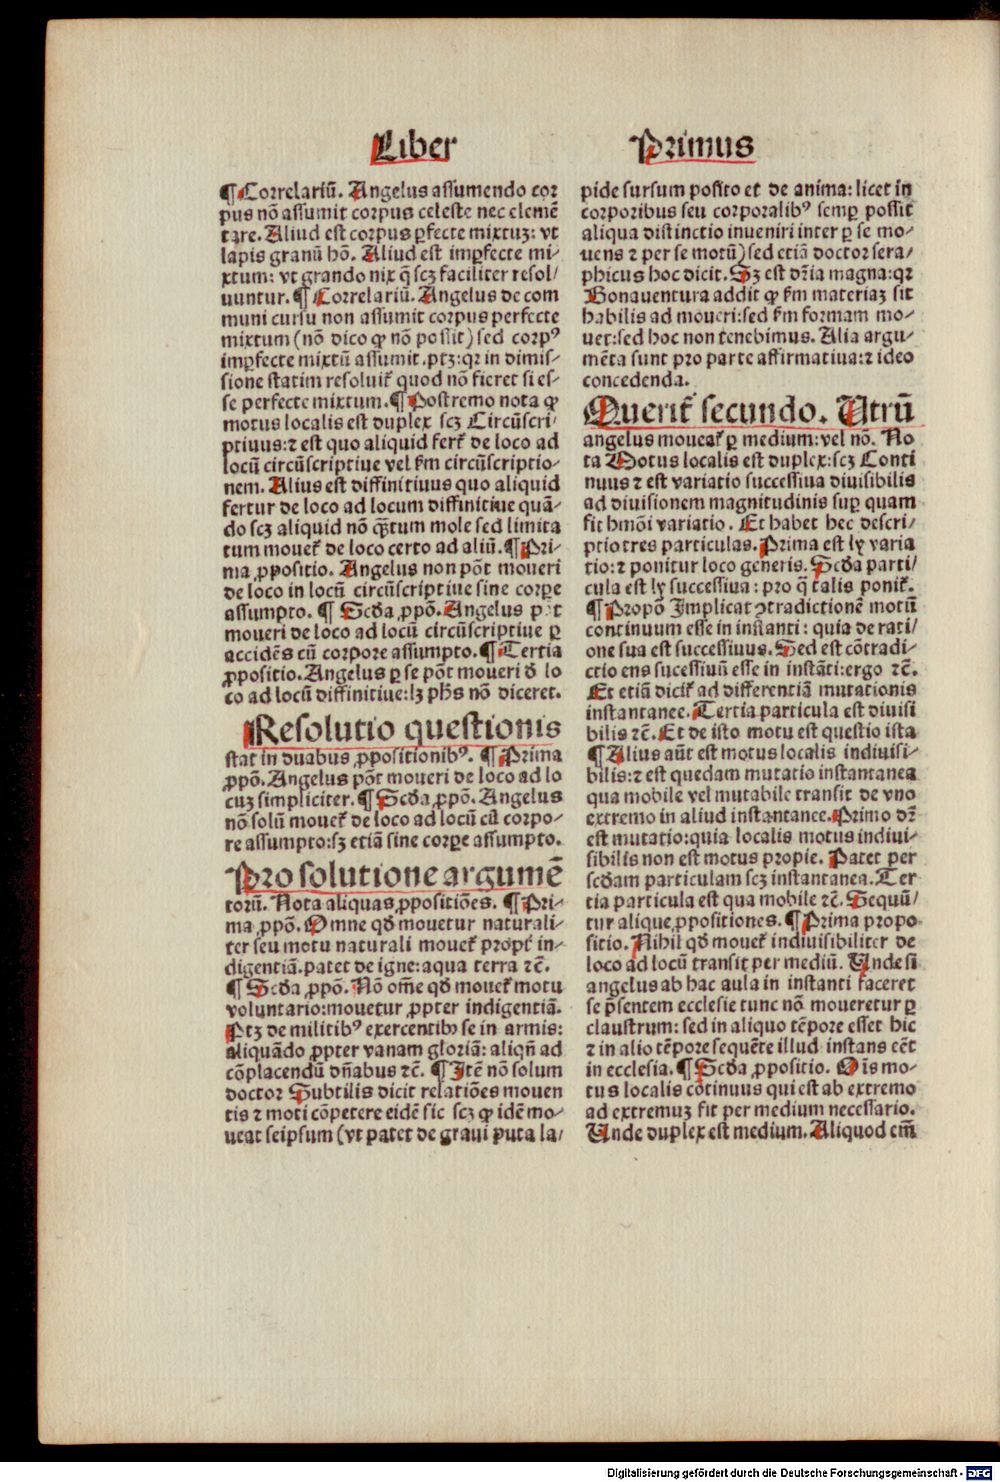 Liber Primus
¶ Correlariū. Angelus assumendo cor
pus nō assumit corpus celeste nec elemē
tare. Aliud est corpus ꝑfecte mixtuꝫ: vt
lapis granū hō. Aliud est imꝑfecte mi⸗
xtum: vt grando nix q̄ scꝫ faciliter resol⸗
uuntur. ¶ Correlariū. Angelus de com
muni cursu non assumit corpus perfecte
mixtum (nō dico ꝙ nō possit) sed corpꝰ
imꝑfecte mixtū assumit. ptꝫ: qꝛ in dimis⸗
sione statim resoluit᷑ quod nō fieret si es⸗
se perfecte mixtum. ¶ Postremo nota ꝙ
motus localis est duplex scꝫ Circūscri⸗
ptiuus: ⁊ est quo aliquid fert᷑ de loco ad
locū circūscriptiue vel ẜm circūscriptio⸗
nem. Alius est diffinitiuus quo aliquid
fertur de loco ad locum diffinitiue quā⸗
do scꝫ aliquid nō q̄ꝫtum mole sed limita
tum mouet᷑ de loco certo ad aliū. ¶ Pri⸗
ma ꝓpositio. Angelus non pōt moueri
de loco in locū circūscriptiue sine corꝑe
assumpto. ¶ Scďa ꝓpō. Angelus pōt
moueri de loco ad locū circūscriptiue ꝑ
accidēs cū corpore assumpto. ¶ Tertia
ꝓpositio. Angelus ꝑ se pōt moueri ď lo
co ad locū diffinitiue: lꝫ ph̄s nō diceret.
Resolutio questionis
stat in duabus ꝓpositionibꝰ. ¶ Prima
ꝓpō. Angelus pōt moueri de loco ad lo
cuꝫ simpliciter. ¶ Scďa ꝓpō. Angelus
nō solū mouet᷑ de loco ad locū cū corpo⸗
re assumpto: sꝫ etiā sine corꝑe assumpto.
Pro solutione argumē
torū. Nota aliquas ꝓpositiōes. ¶ Pri⸗
ma ꝓpō. Omne qď mouetur naturali⸗
ter seu motu naturali mouet᷑ propt̄ in⸗
digentiā. patet de igne: aqua terra ⁊c̄.
¶ Scďa ꝓpō. Nō om̄e qď mouet᷑ motu
voluntario: mouetur ꝓpter indigentiā.
Ptꝫ de militibꝰ exercentibꝰ se in armis:
aliquādo ꝓpter vanam gloriā: aliqn̄ ad
cōplacendū dn̄abus ⁊c̄. ¶ Itē nō solum
doctor Subtilis dicit relatiōes mouen
tis ⁊ moti cōpetere eidē sic scꝫ ꝙ idē mo⸗
ueat seipsum (vt patet de graui puta la⸗
pide sursum posito et de anima: licet in
corporibus seu corporalibꝰ semꝑ possit
aliqua distinctio inueniri inter ꝑ se mo⸗
uens ⁊ per se motū) sed etiā doctor sera⸗
phicus hoc dicit. Sꝫ est dr̄ia magna: qꝛ
Bonauentura addit ꝙ ẜm materiaꝫ sit
habilis ad moueri: sed ẜm formam mo⸗
uet: sed hoc non tenebimus. Alia argu⸗
mēta sunt pro parte affirmatiua: ⁊ ideo
concedenda.
Querit᷑ secundo. Utrū
angelus moueat᷑ ꝑ medium: vel nō. No
ta Motus localis est duplex: scꝫ Conti
nuus ⁊ est variatio successiua diuisibilis
ad diuisionem magnitudinis suꝑ quam
fit hmōi variatio. Et habet hec descri⸗
ptio tres particulas. Prima est ly varia
tio: ⁊ ponitur loco generis. Scďa parti⸗
cula est ly successiua: pro q̄ talis ponit᷑.
¶ Propō Implicat ꝯtradictionē motū
continuum esse in instanti: quia de rati⸗
one sua est successiuus. Sed est cōtradi⸗
ctio ens sucessiuū esse in instāti: ergo ⁊c̄.
Et etiā dicit᷑ ad differentiā mutationis
instantanee. Tertia particula est diuisi
bilis ⁊c̄. Et de isto motu est questio ista
¶ Alius aūt est motus localis indiuisi⸗
bilis: ⁊ est quedam mutatio instantanea
qua mobile vel mutabile transit de vno
extremo in aliud instantanee. Primo dr̄
est mutatio: quia localis motus indiui⸗
sibilis non est motus propie. Patet per
scďam particulam scꝫ instantanea. Ter
tia particula est qua mobile ⁊c̄. Sequū⸗
tur alique ꝓpositiones. ¶ Prima propo
sitio. Nihil qď mouet᷑ indiuisibiliter de
loco ad locū transit per mediū. Unde si
angelus ab hac aula in instanti faceret
se p̄sentem ecclesie tunc nō moueretur ꝑ
claustrum: sed in aliquo tēpore esset hic
⁊ in alio tēpore sequēte illud instans eēt
in ecclesia. ¶ Scďa ꝓpositio. Oīs mo⸗
tus localis cōtinuus qui est ab extremo
ad extremuꝫ fit per medium necessario.
Unde duplex est medium. Aliquod em̄
Digitalisierung gefördert durch die Deutsche Forschungsgemeinschaft - DFG